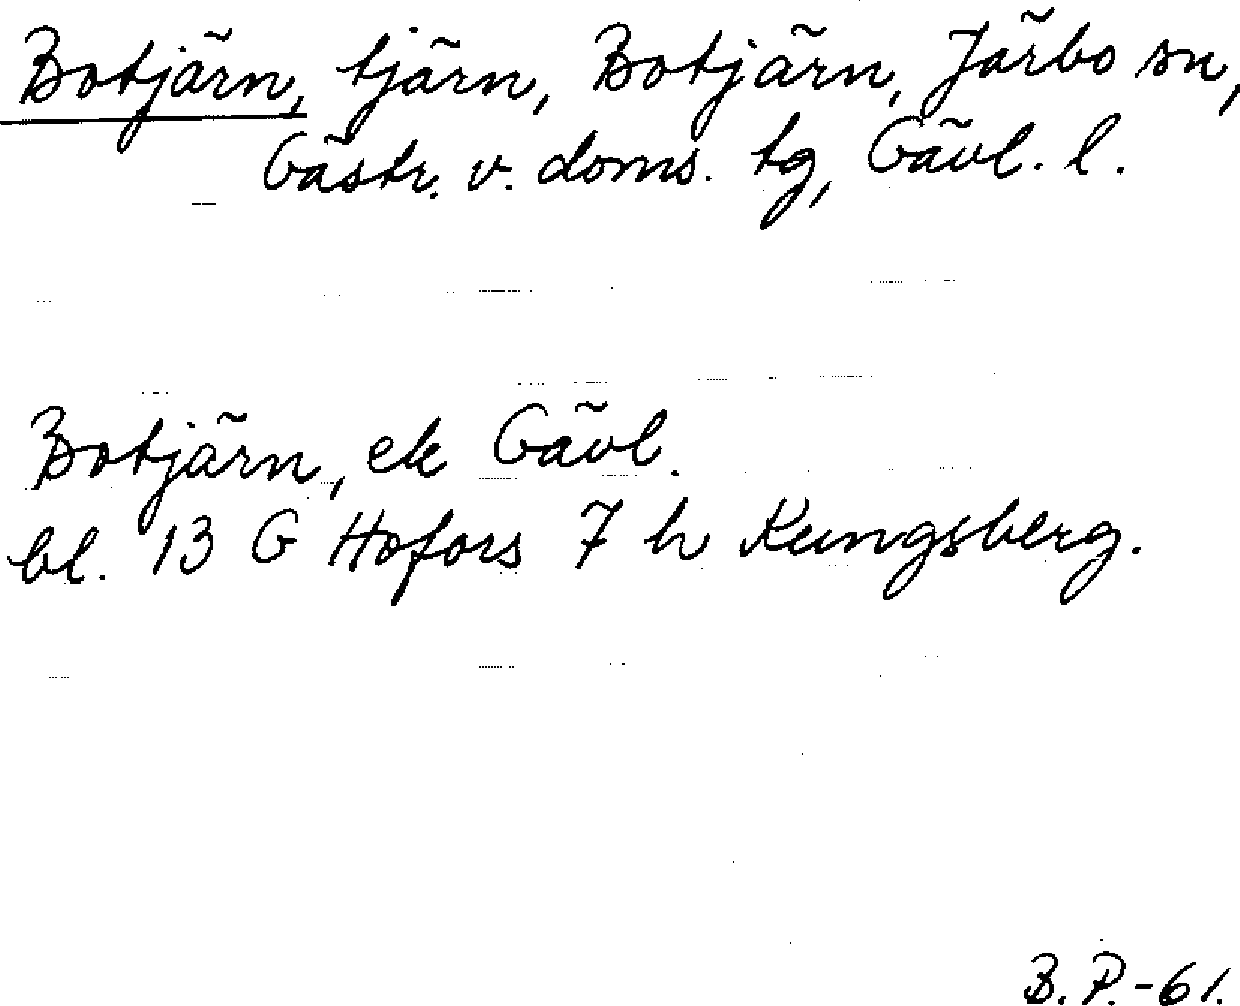 Botjärn, tjärn, Botjärn, Järbo sn,
Gästr. v. doms. tg, Gävl. l.
Botjärn, ek Gävl.
bl. 13 G Hofors 7 h Kungsberg.
B. P. -61.